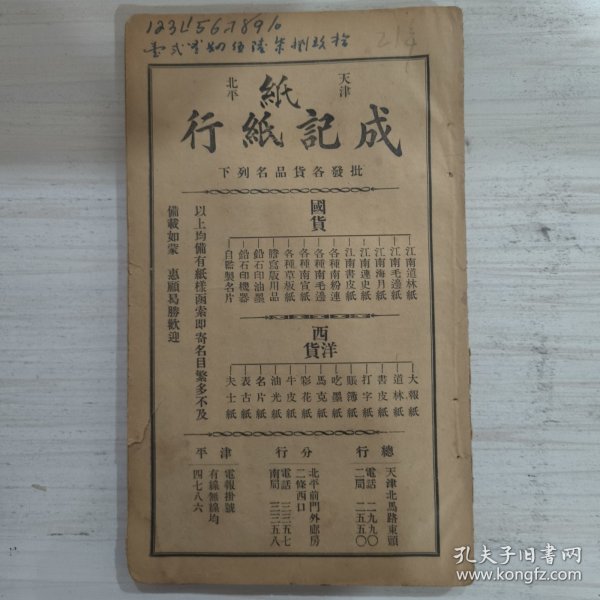 1234567890
壹弍叁肆伍陸柒捌玖拾
天津
北平
紙
成記紙行
批發各貨品名列下
國貨
江南道林紙
江南毛邊紙
江南海月紙
江南連史紙
江南書皮紙
各種南粉連
各種南毛邊
各種南宣紙
各種草板紙
謄寫版用品
鉛石印油墨
鉛石印機器
自藍製名片
西洋貨
大報紙
道林紙
書皮紙
打字紙
賬簿紙
吃墨紙
馬克紙
彩花紙
牛皮紙
油光紙
名片紙
表古紙
夫士紙
以上均備有紙樣函索即寄名目繁多不及
備載如蒙 惠顧曷勝歡迎
總行
天津北馬路東頭
電話 二九九〇
二局 二五五〇
分行
北平前門外廊房
二條西口
電話 三三五七
南局 三三五八
津平
電報掛號
有線無線均
四七八六
孔夫子旧书网
www.kongfz.com